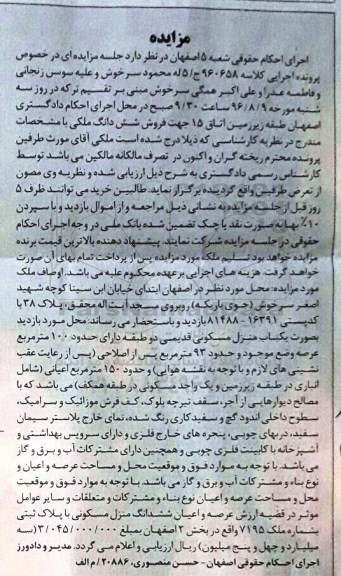 مزایده
اجرای احکام حقوقی شعبه ۵ اصفهان در نظر دارد جلسه مزایده ای در خصوص
پرونده اجرایی کلاسه ۹۶۰۶۵۸ ج/۵ له محمود سرخوش و علیه سوسن زنجانی
و فاطمه عذرا و علی اکبر همگی سرخوش مبنی بر تقسیم ترکه در روز سه
شنبه مورخه ۹۶/۸/۹ ساعت ۹/۳۰ صبح در محل اجرای احکام دادگستری
اصفهان طبقه زیرزمین اتاق ۱۵ جهت فروش شش دانگ ملکی با مشخصات
مندرج در نظریه کارشناسی که ذیلا درج شده است ملکی آقای مورث طرفین
پرونده محترم ریخته گران و اکنون در تصرف مالکانه مالکین می باشد توسط
کارشناس رسمی دادگستری به شرح ذیل ارزیابی شده و نظریه وی مصون
از تعرض طرفین واقع گردیده برگزار نماید. طالبین خرید می توانند ظرف ۵
روز قبل از جلسه مزایده به نشانی ذیل مراجعه و از اموال بازدید و با سپردن
۱۰٪ بها به صورت نقد یا چک تضمین شده بانک ملی در وجه اجرای احکام
حقوقی در جلسه مزایده شرکت نمایند. پیشنهاد دهنده بالاترین قیمت برنده
مزایده خواهد بود تسلیم ملک مورد مزایده پس از پرداخت تمام بهای آن صورت
خواهد گرفت. هزینه های اجرایی بر عهده محکوم علیه می باشد. اوصاف ملک
مورد مزایده: محل مورد نظر در اصفهان ابتدای خیابان ابن سینا کوچه شهید
اصغر سرخوش (جوی باریکه)، روبروی مسجد آیت اله محقق، پلاک ۳۸ با
کدپستی ۱۶۳۹۱-۸۱۴۸۸ بازدید و باستحضار می رساند: محل مورد بازدید
بصورت یکباب منزل مسکونی قدیمی دو طبقه دارای حدود ۱۰۰ مترمربع
عرصه وضع موجود و حدود ۹۳ مترمربع پس از اصلاحی (پس از رعایت عقب
نشینی های لازم و با توجه به نقشه هوایی) و حدود ۱۵۰ مترمربع اعیانی (شامل
انباری در طبقه زیرزمین و یک واحد مسکونی در طبقه همکف) می باشد که با
مصالح دیوارهایی از آجر، سقف تیرچه بلوک، کف فرش موزائیک و سرامیک،
سطوح داخلی اندود گچ و سفیدکاری رنگ شده، نمای خارج پلاستر سیمان
سفید، دربهای چوبی، پنجره های خارج فلزی و دارای سرویس بهداشتی و
آشپزخانه با کابینت فلزی چوبی و همچنین دارای مشترکات آب و برق و گاز
می باشد. با توجه به موارد فوق و موقعیت محل و مساحت عرصه و اعیان و
نوع بناء و مشترکات آب و برق و گاز می باشد. با توجه به موارد فوق و موقعیت
محل و مساحت عرصه و اعیان نوع بناء و مشترکات و متعلقات و سایر عوامل
موثر در قضیه ارزش عرصه و اعیان ششدانگ منزل مسکونی با پلاک ثبتی
بشماره ملک ۷۱۹۵ واقع در بخش ۲ اصفهان بمبلغ ۳/۰۴۵/۰۰۰/۰۰۰ (سه
میلیارد و چهل و پنج میلیون) ریال ارزیابی و اعلام می گردد. مدیر و دادورز
اجرای احکام حقوقی اصفهان - حسن منصوری. ۲۰۸۸۶/ م الف